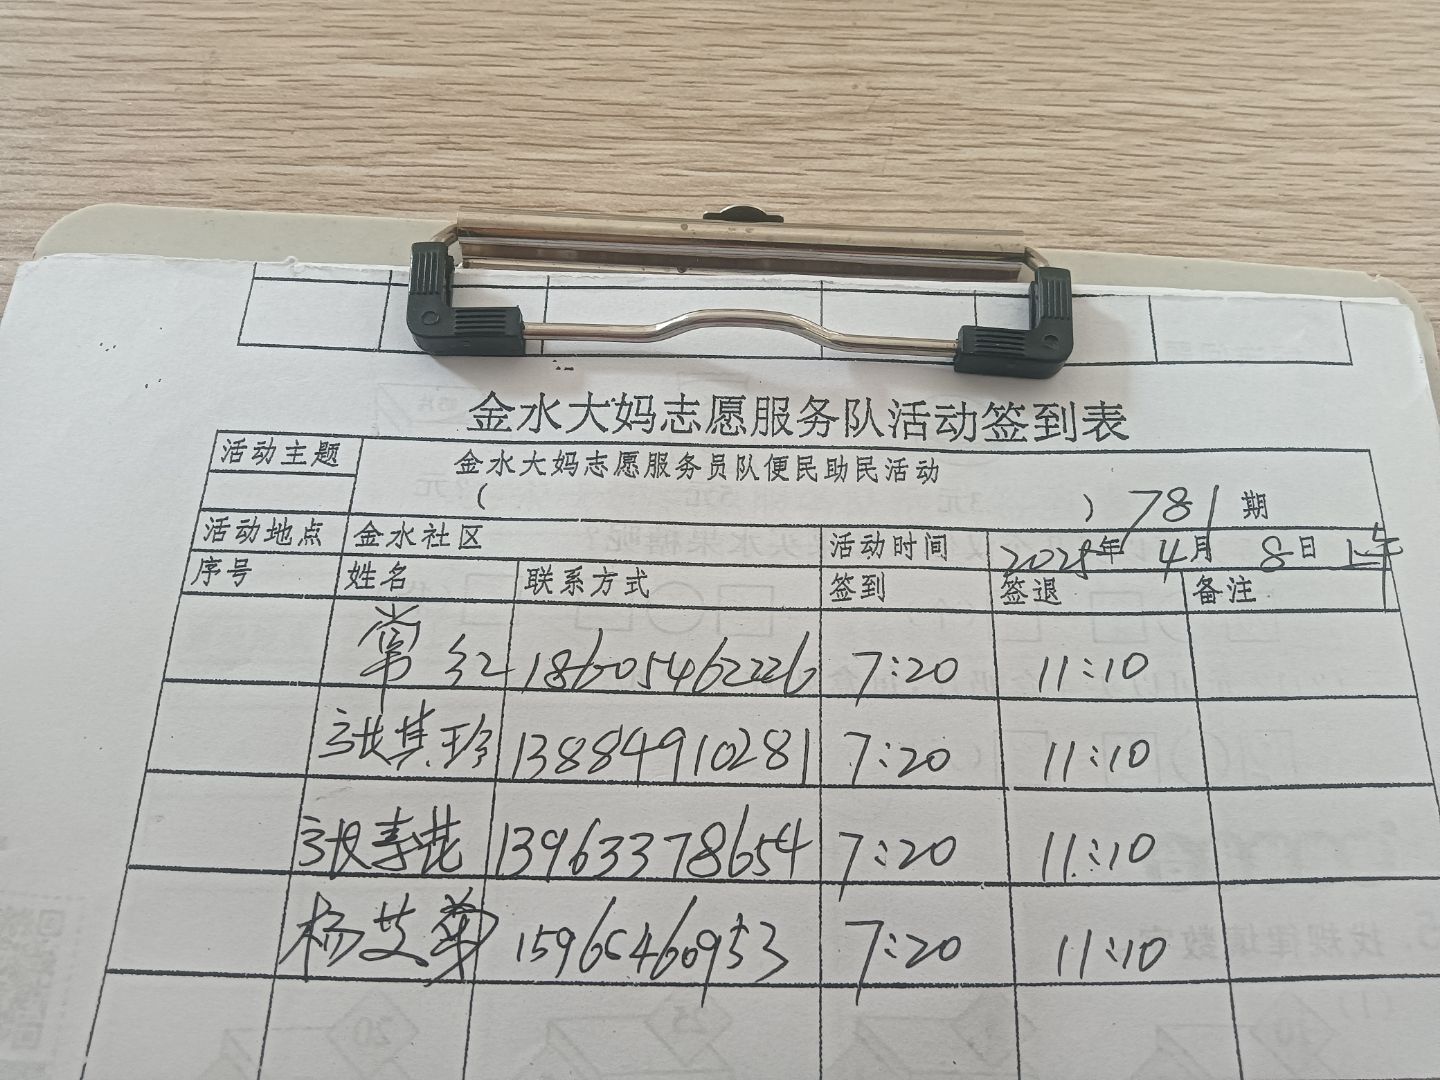 金水大妈志愿服务队活动签到表
活动主题 金水大妈志愿服务员队便民助民活动
( ) 781 期
活动地点 金水社区 活动时间 2025年 4月 8日 上午
序号 姓名 联系方式 签到 签退 备注
常红 18605462226 7:20 11:10
张其珍 13884910281 7:20 11:10
张春花 13963378654 7:20 11:10
杨艾 15965460953 7:20 11:10